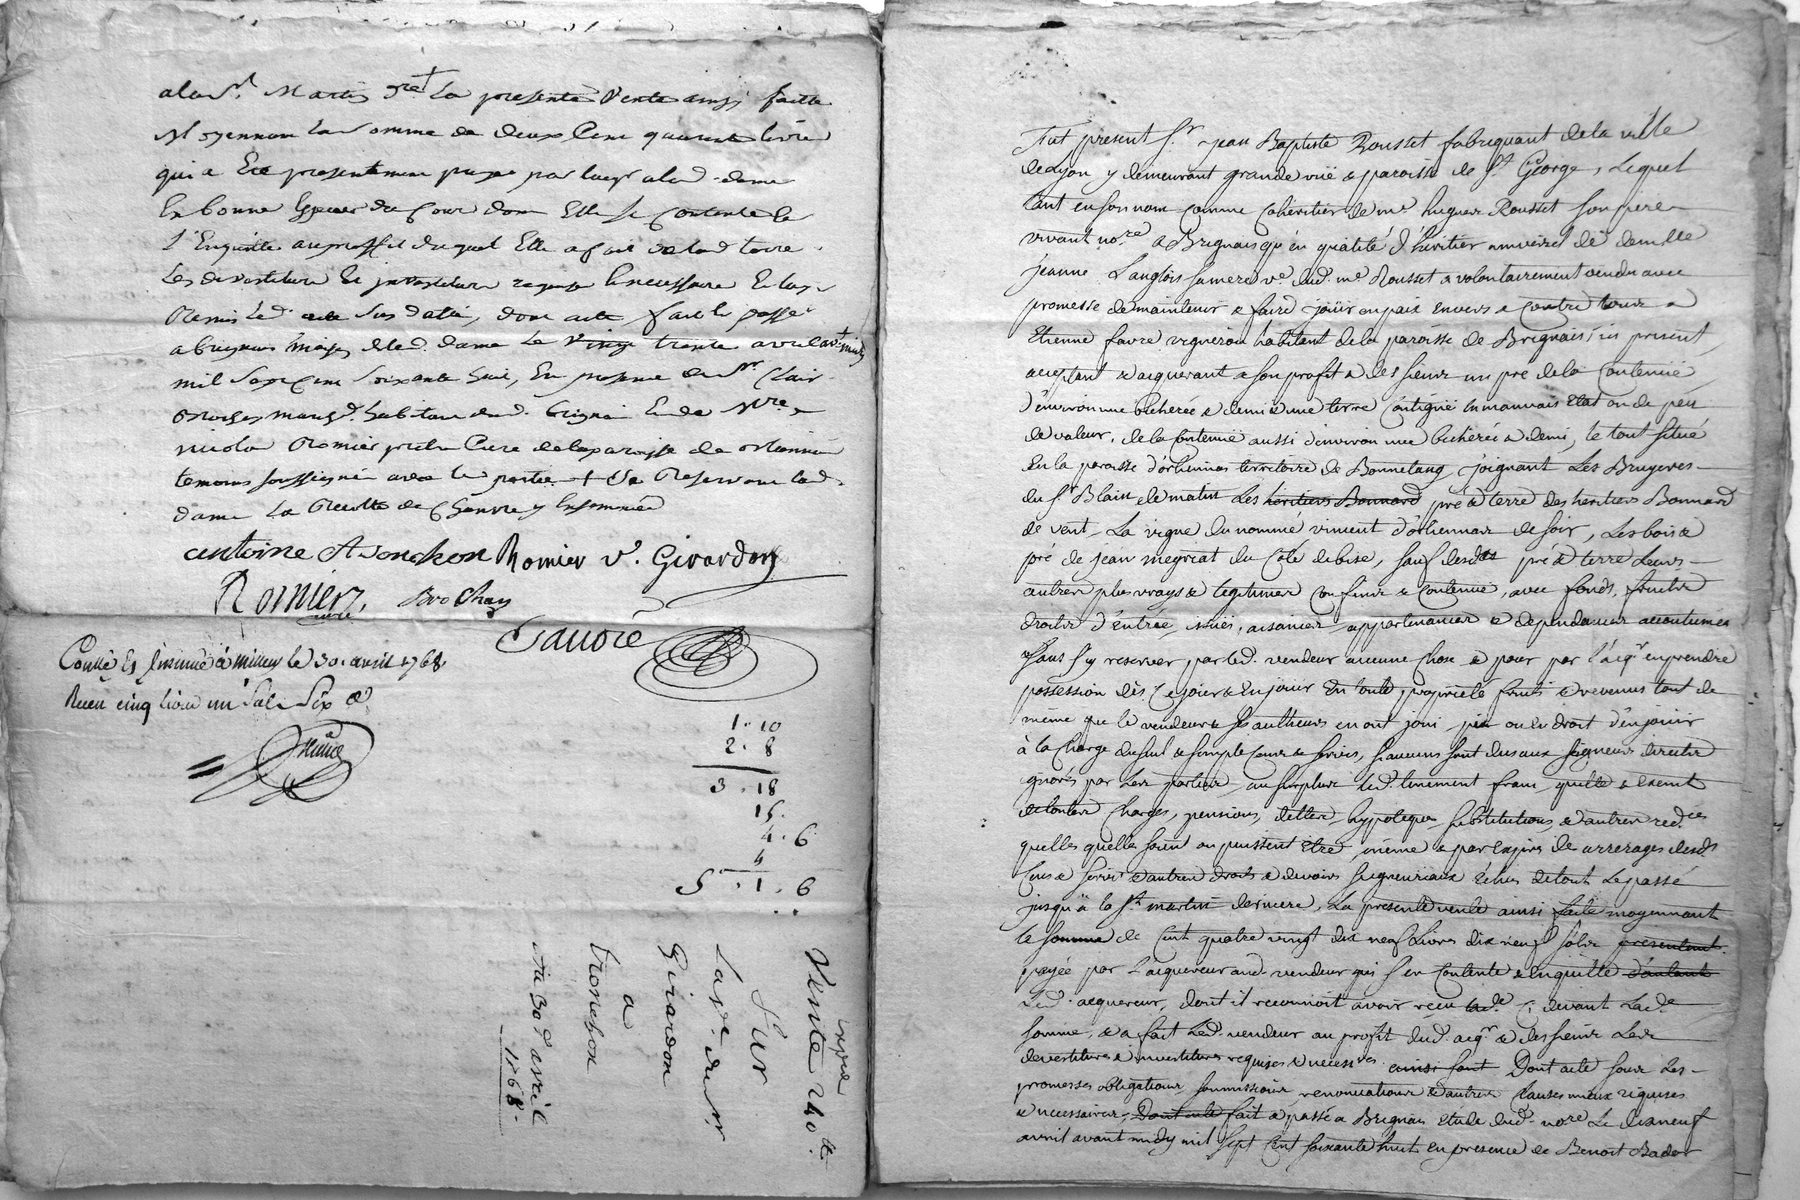 a lad. St Martin dre + La presente Vente ainsi faitte
Moyennan la Somme de deux Cent quarente livre
qui a Eté presentemen payée par lacqr a lad. dame
En bonne Espece du Cour dont Elle Se Contente &
L'Enquitte au proffit duquel Elle a fait de lad terre
Les devestiture & investiture requise & necessaire & luy a
Remis led. acte Sus datté, dont acte fait & passé
a brignais maison de lad. dame Le vingt trente avril avt midy
mil Sept Cent Soixante huit, En presence de Sr Clair
march. habitan dud. brignai & de Mre
nicolas Romier pretre Curé de la paroisse de orlienna
temoins soussignés avec les parties + Se Reservant lad.
dame La Recolte de Chanvre y Ensemencée
antoine tronchon Romier v. Girardon
Romier, Brochay
curé
Gavoïe
Conllé Et Insinué à millery le 30. avril 1768
Receu cinq livre un Sol Six d
1. 10
2. 8
3. 18
15.
4. 6
4
5. 1. 6
Vente 240 tt
Sur
La ve du Sr
Girardon
a
tronchon
du 30e avril
1768.
Fut present Sr. jean Baptiste Rousset fabriquant de la ville
de Lyon y demeurant grande ruë & paroisse de St George, Lequel
tant en son nom comme Cohéritier de me hugues Rousset Son pere
vivant nore a Brignais qu'en qualité d'héritier universel de demlle
jeanne Langlois sa mere ve. dud. me Rousset a volontairement vendu avec
promesse de maintenir & faire joüir en paix envers & contre tous a
Etienne favre vigneron habitant de la paroisse de Brignais, ici present,
acceptant & acquerant a son profit & des siens un pré de la Contenüe
d'environ une bicherée & demi & une terre Contigüe en mauvais Etat ou de peu
de valeur, de la Contenüe aussi d'environ une bicherée & demi, le tout Situé
En la paroisse d'orliennas territoire de Bonnetang, joignant Les Bruyeres
du Sr Blain de matin Les heritiers Bonnard pré & terre des heritiers Bonnard
de vent, La vigne du nommé vincent d'orliennas de soir, Les bois &
pré de jean megreat du Côté de bise, sauf desdits pré & terre Leurs
autres plus vrays & legitimes Confins & Contenüe, avec fonds, fruits
droits d'éntrée, issües, aisances, appartenances & dependances accoutumés
Sans s'y reserver par led. vendeur aucune Chose & pour par l'acqr en prendre
possession dès Ce jourd'hui & En jouir En toute propriété fruits & revenus tout de
même que le vendeur & Ses autheurs en ont joui, peu ou eu droit d'en jouir
à la Charge du seul & simple Cens & Servis, si aucuns sont dus aux seigneurs directs
ignorés par Les parties, au surplus led. tenement franc, quitte & exemt
de toutes Charges, pensions, dettes hypoteques Substitutions, & autres redces
quelles quelles soient ou puissent être, même & par exprès de arrerages desds
Cens & Servis & autres droits & devoirs Seigneuriaux Echus de tout Le passé
jusqu'à la St martin derniere, La presente vente ainsi faite moyennant
la somme de Cent quatre vingt dix neuf Livres dix neuf sols presentemt
payée par L'acquereur aud. vendeur qui S'en Contente & En quitte d'autant
Led. acquereur, dont il reconnoit avoir recu lade Ci devant Lade
somme, & a fait Led. vendeur au profit dud. acqr & des Siens Les
devestitures & investitures requises & necessres ainsi faut Dont acte sous Les
promesses obligations, soumissions renonciations & autres Clauses mieux réquises
& necessaires, Dont acte fait & passé a Brignais Etude dud. nore Le dixneuf
avril avant midy mil Sept Cent soixante huit En presence de Benoit Bador